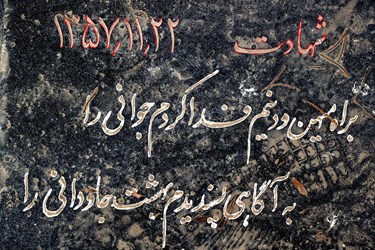 شهادت ۱۳۵۷٫۱۱٫۲۲
براه میهن و دینم فدا کردم جوانی را
به آگاهی پسندیدم بهشت جاودانی را